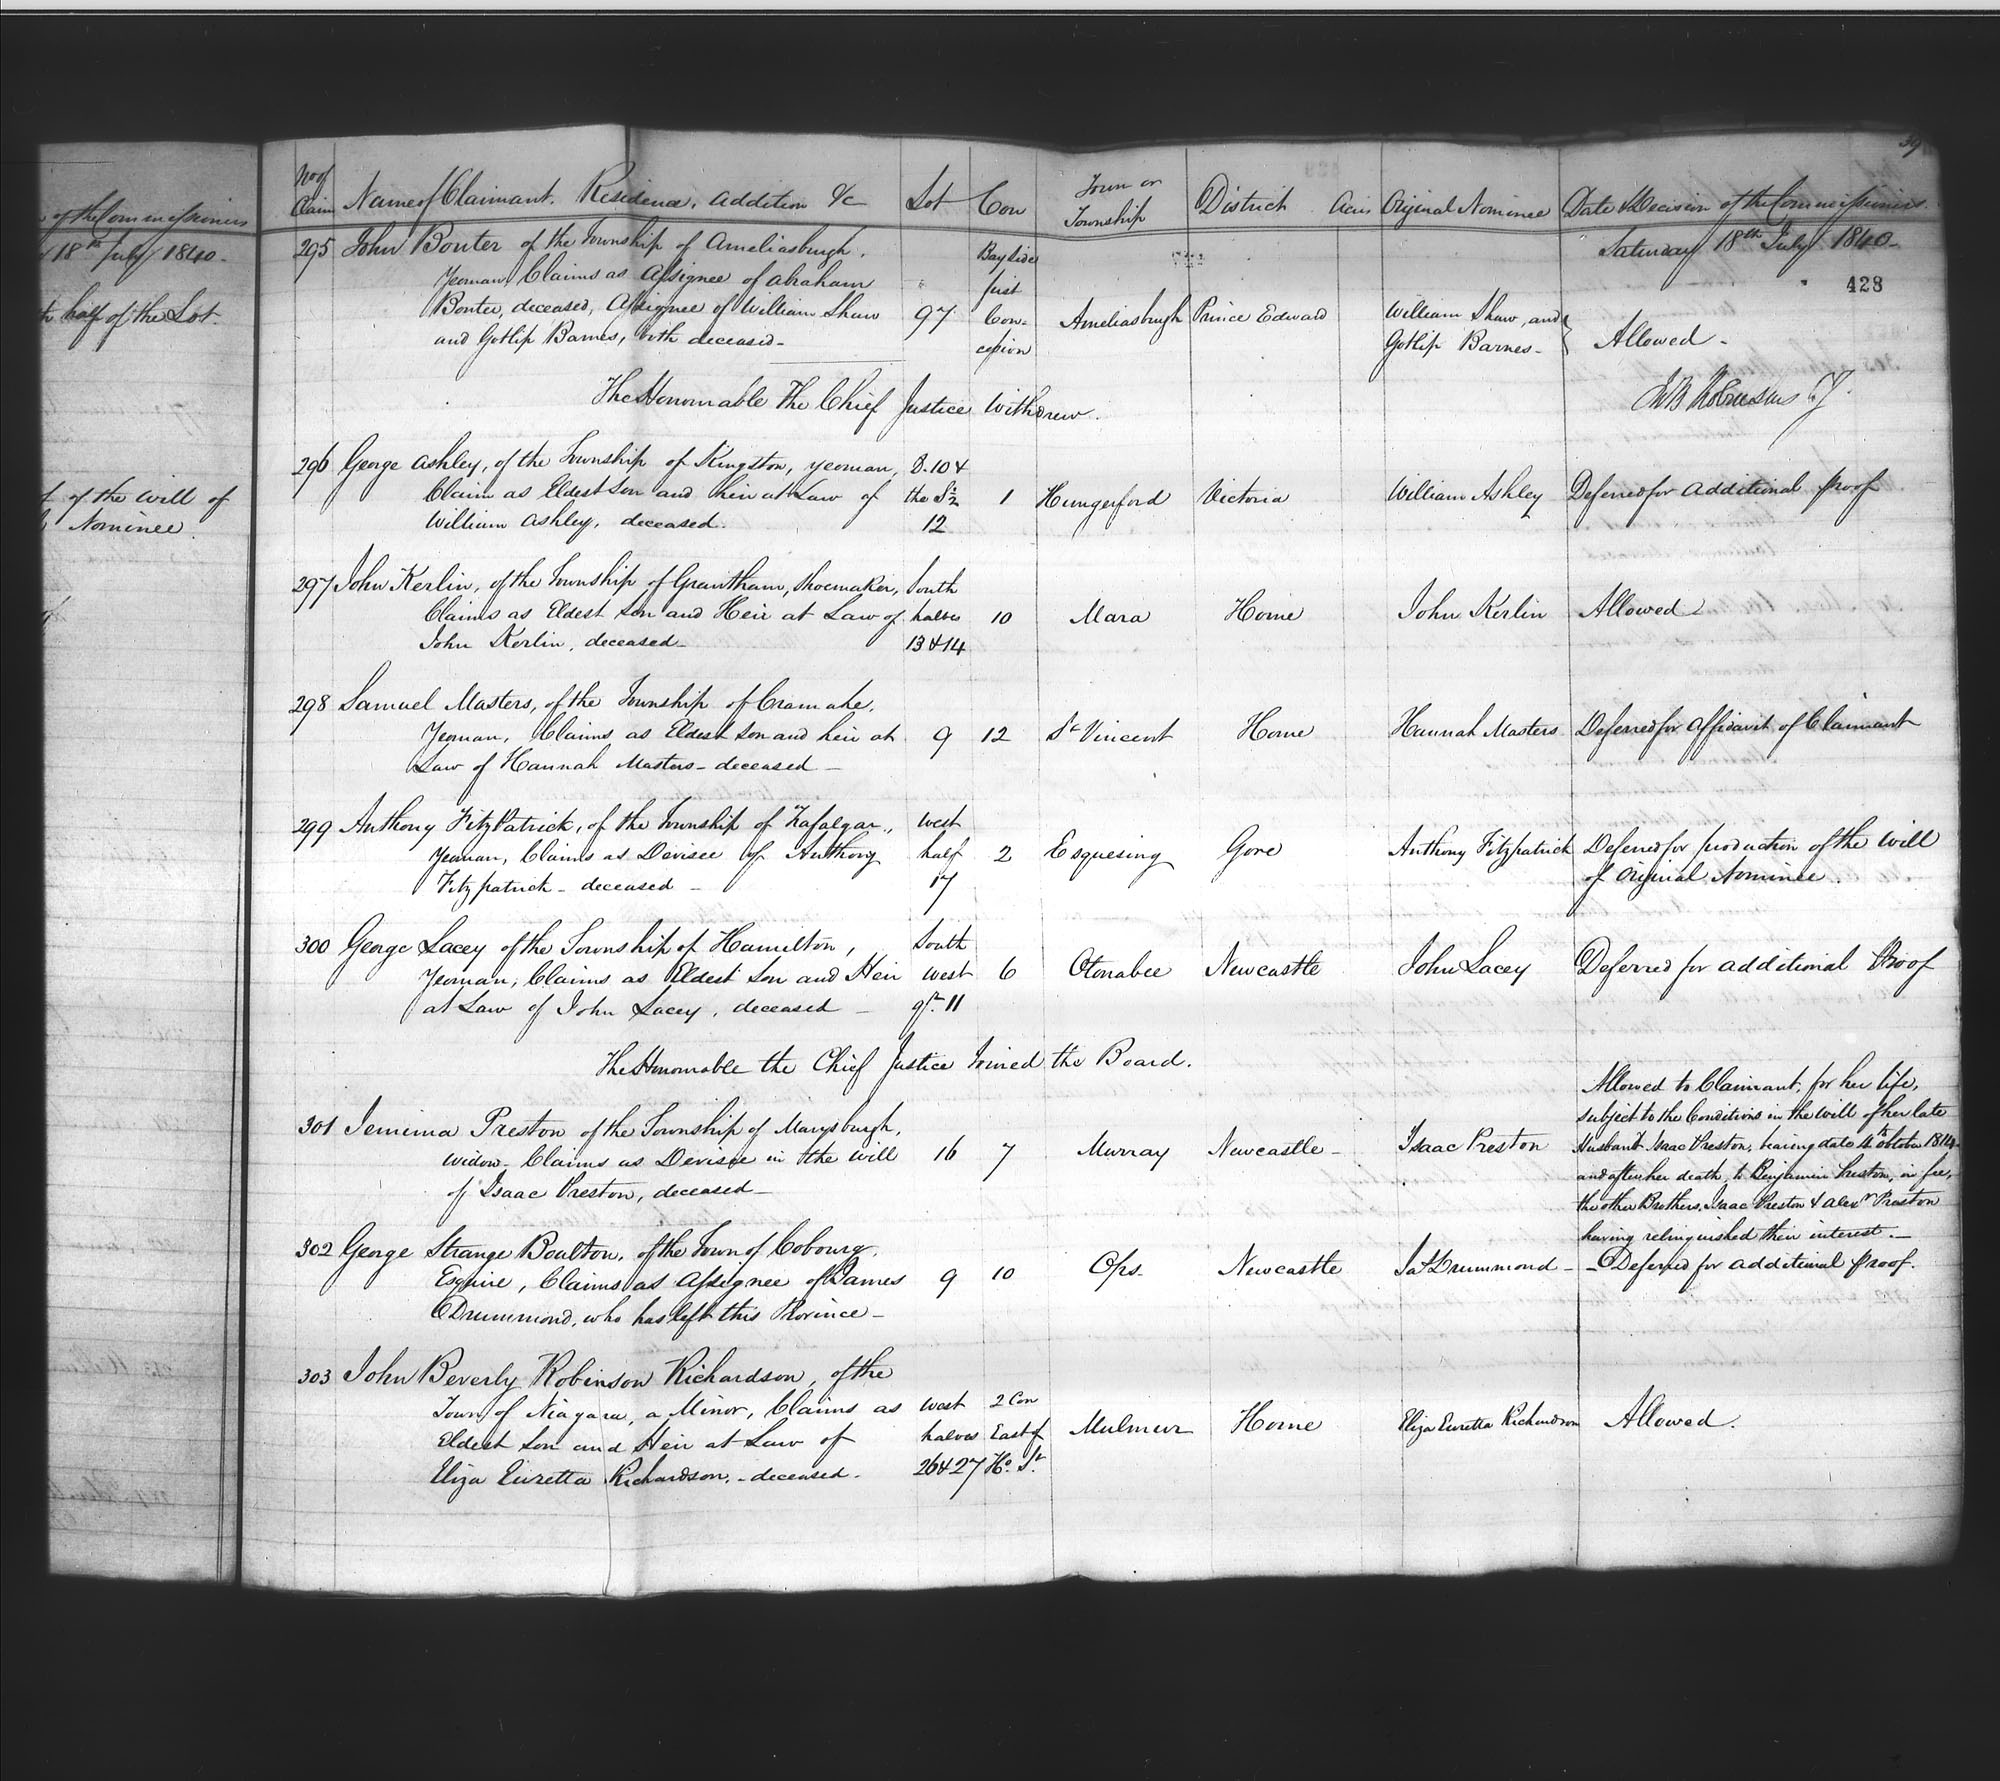 of the Commissioners
18th July 1840-
half of the Lot.
of the Will of
Nominee.
39
No of Claim
Name of Claimant. Residence, Addition &c
Lot
Con
Town or Township
District
Acres
Original Nominee
Date & Decision of the Commissioners
Saturday 18th July 1840-
428
295 John Bonter of the Township of Ameliasburgh,
Yeoman, Claims as Assignee of Abraham
Bonter, deceased, Assignee of William Shaw
and Gotlip Barnes, both deceased-
97
Bay side
first
Con-
cession
Ameliasburgh
Prince Edward
William Shaw, and
Gotlip Barnes-
Allowed-
The Honorable The Chief Justice Withdrew.
296 George Ashley, of the Township of Kingston, yeoman,
Claim as Eldest Son and heir at Law of
William Ashley, deceased.
8.10 &
the S½
12
1
Hungerford
Victoria
William Ashley
Deferred for additional proof
297 John Kerlin, of the Township of Grantham, Shoemaker,
Claims as Eldest Son and Heir at Law of
John Kerlin, deceased-
South
halves
13 & 14
10
Mara
Home
John Kerlin
Allowed-
298 Samuel Masters, of the Township of Cramahe,
Yeoman, Claims as Eldest Son and heir at
Law of Hannah Masters- deceased-
9
12
St Vincent
Home
Hannah Masters
Deferred for Affidavit of Claimant
299 Anthony FitzPatrick, of the Township of Trafalgar,
Yeoman, Claims as Devisee of Anthony
Fitzpatrick- deceased-
West
half
17
2
Esquesing
Gore
Anthony Fitzpatrick
Deferred for production of the Will
of Original Nominee.
300 George Lacey of the Township of Hamilton,
Yeoman, Claims as Eldest Son and Heir
at Law of John Lacey, deceased-
South
West
qr. 11
6
Otonabee
Newcastle
John Lacey
Deferred for additional Proof
The Honorable the Chief Justice Joined the Board.
301 Jemima Preston of the Township of Marysburgh,
Widow- Claims as Devisee in the Will
of Isaac Preston, deceased-
16
7
Murray
Newcastle-
Isaac Preston
Allowed to Claimant, for her life,
subject to the Conditions in the Will of her late
Husband Isaac Preston, bearing date 4th October 1814
and after her death, to Benjamin Preston, in fee,
the other Brothers, Isaac Preston & Alexr Preston
having relinquished their interest.-
302 George Strange Boulton, of the Town of Cobourg,
Esquire, Claims as Assignee of James
Drummond, who has left this Province-
9
10
Ops-
Newcastle
Jas Drummond-
- Deferred for additional proof.
303 John Beverly Robinson Richardson, of the
Town of Niagara, a Minor, Claims as
Eldest Son and Heir at Law of
Eliza Euretta Richardson,- deceased-
West
halves
26 & 27
2 Con
East of
Ho. St.
Mulmur
Home
Eliza Euretta Richardson
Allowed.